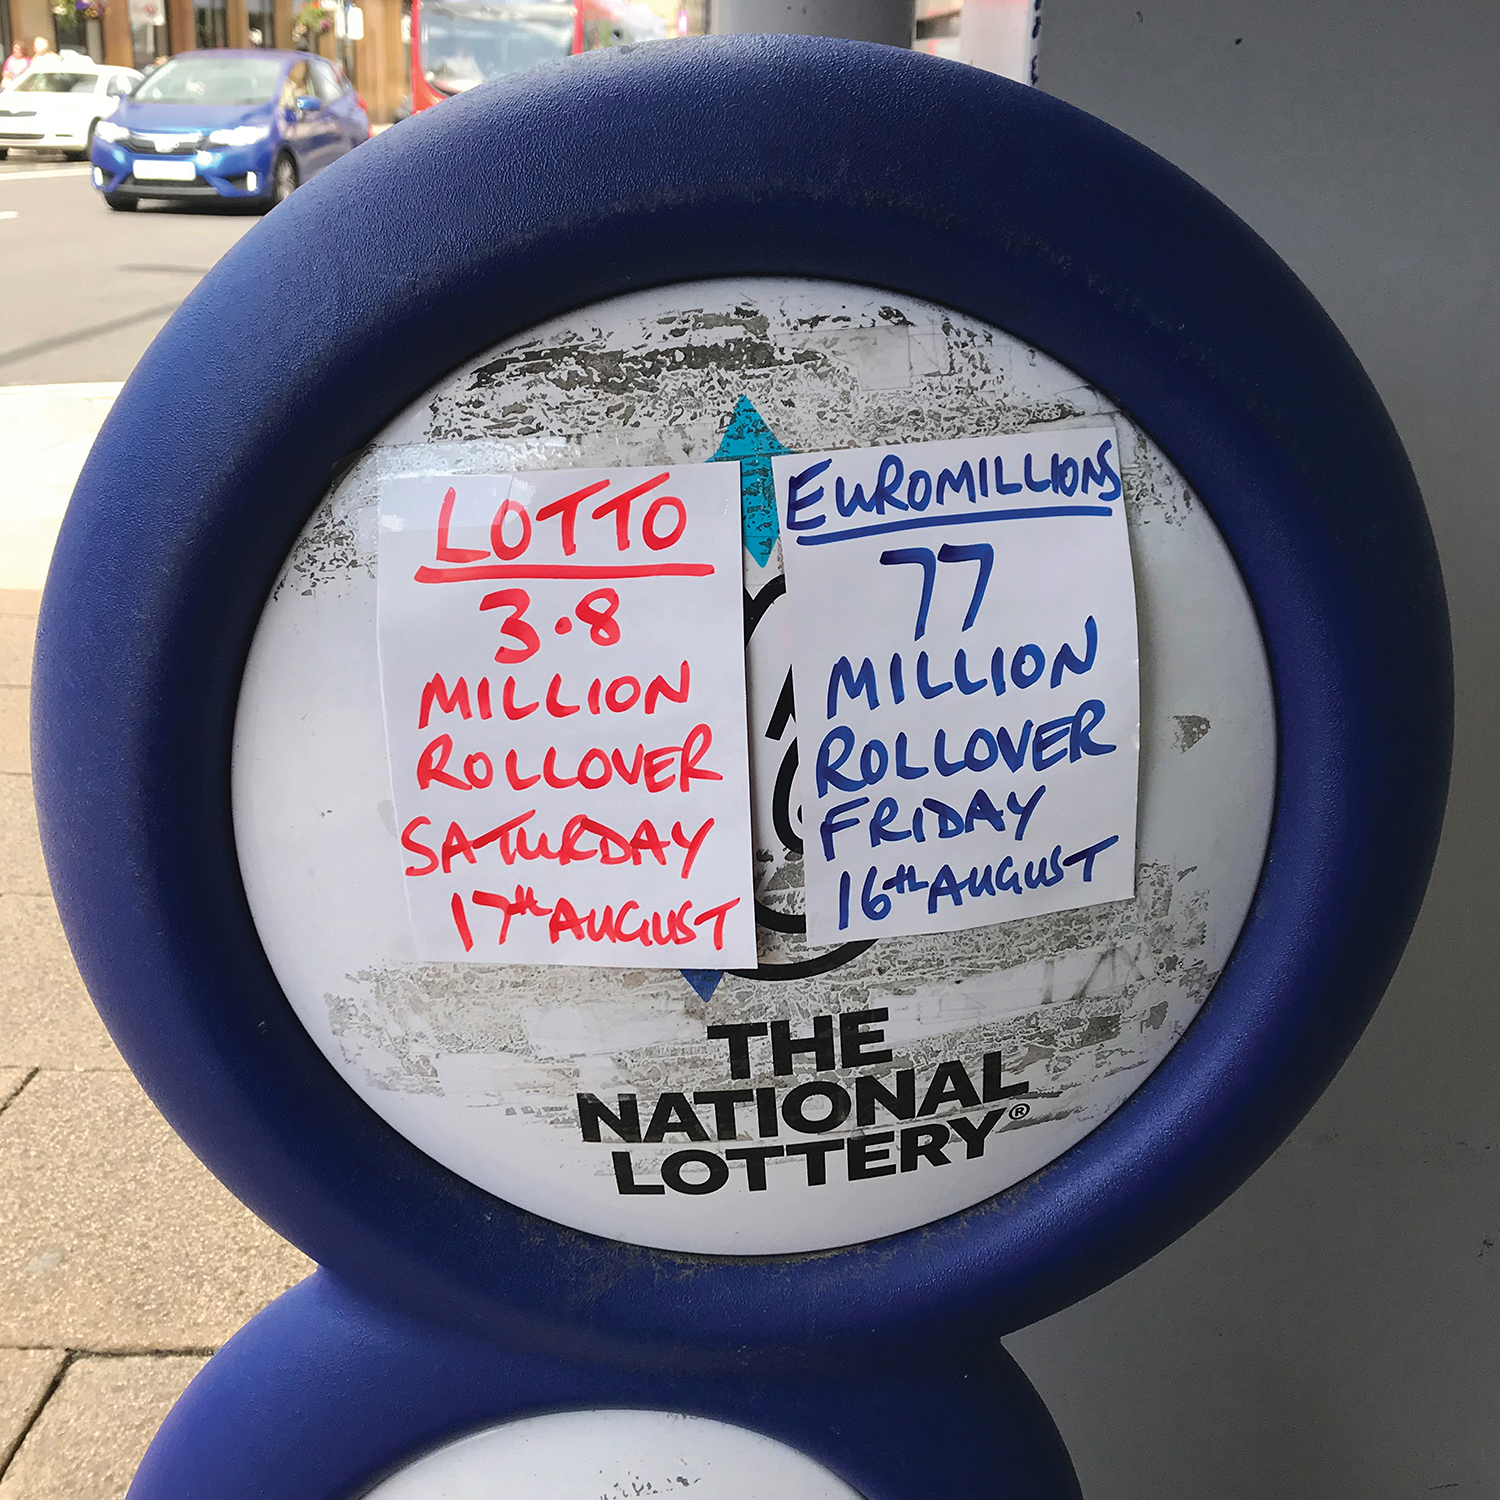 LOTTO
3.8
MILLION
ROLLOVER
SATURDAY
17th AUGUST
EUROMILLIONS
77
MILLION
ROLLOVER
FRIDAY
16th AUGUST
THE
NATIONAL
LOTTERY®